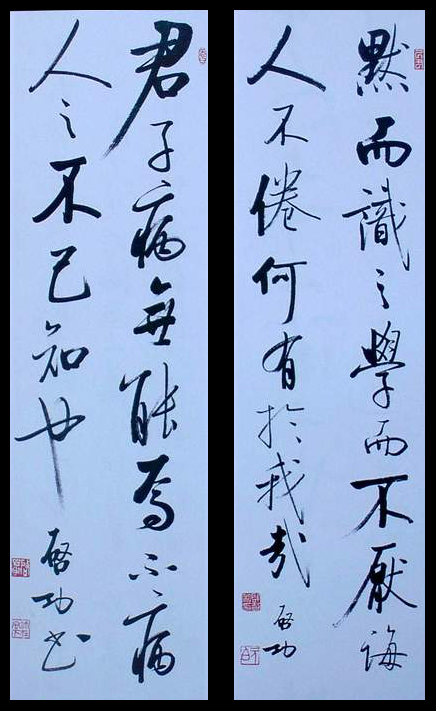 默而識之學而不厭誨
人不倦何有於我哉
啓功
君子病無能焉不病
人之不己知也
啓功書